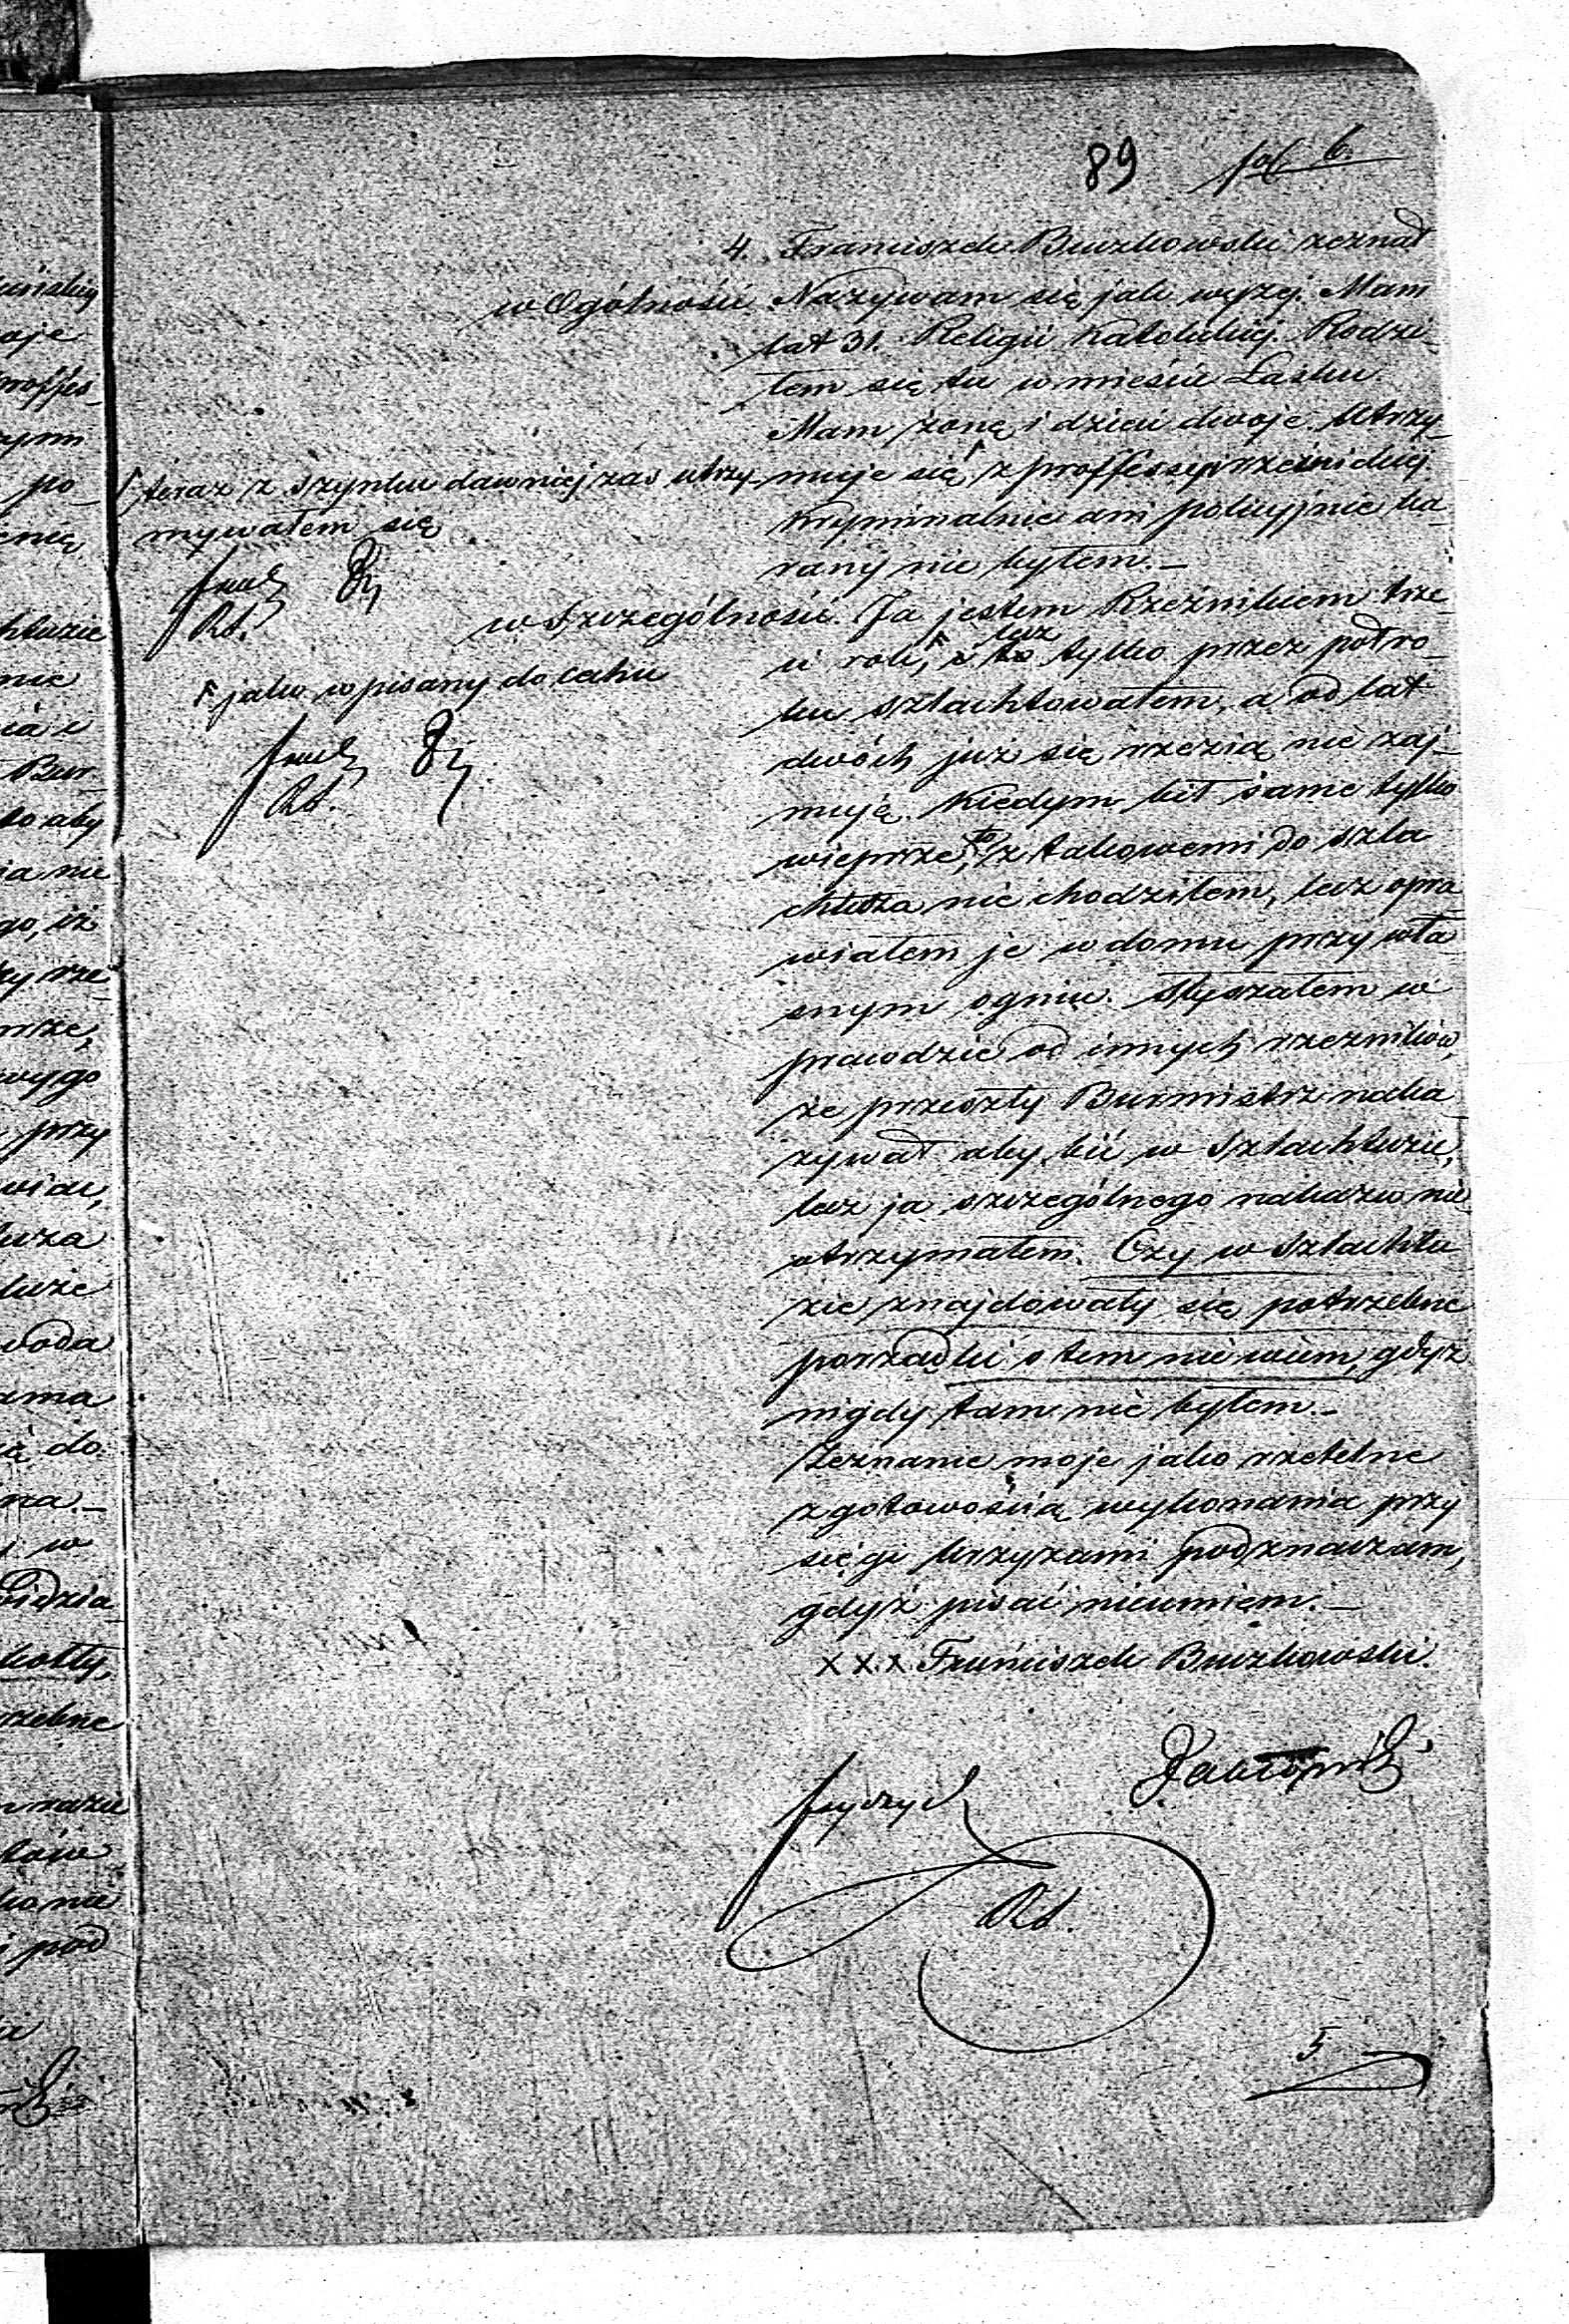 89 fol 6.
4. Franciszek Buczkowski zeznał
w Ogólności. Nazywam się jak wyżej. Mam
lat 31. Religii Katolickiej. Rodzi-
łem się tu w mieście Łasku.
Mam żonę i dzieci dwoje. Utrzy-
muje się z proffessyi rzeźnickiej
kryminalnie ani policyjnie ka-
rany nie byłem.—
teraz z szynku dawniej zas utrzy-
mywałem się
Rd.
w Szczególności. Ja jestem Rzeźnikiem trze-
ci rok, lecz tylko przez półro-
ku szlachtowałem, a od lat
dwóch już się rzezią nie zaj-
muję. Kiedym bił same tylko
wieprze, to z takowemi do szla
chtuza nie chodziłem, lecz opra
wiałem je w domu przy wła
snym ogniu. Słyszałem w
prawdzie od innych rzeznikow,
że przeszły Burmistrz naka
zywał aby bić w Szlachtuzie,
lecz ja szczególnego nakazu nie
otrzymałem. Czy w Szlachtu
zie znajdowały się potrzebne
porządki o tem nie wiem, gdyż
nigdy tam nie byłem.—
Zeznanie moje jako rzetelne
z gotowością wykonania przy
sięgi krzyżami podznaczam,
gdyż pisać nieumiem.—
jako wpisany do cechu
Rd.
X X X Franciszek Buczkowski.
Rd.
5